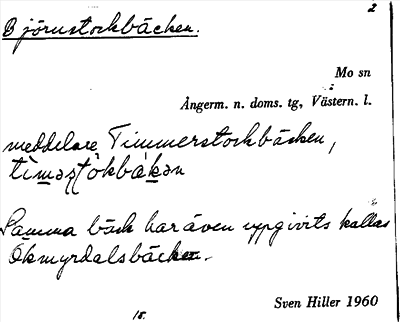 2
Björnstockbäcken.
Mo sn
Ångerm. n. doms. tg, Västern. l.
meddelare Timmerstockbäcken,
Samma bäck har även uppgivits kallas
Ökmyrdalsbäcken.
18.
Sven Hiller 1960